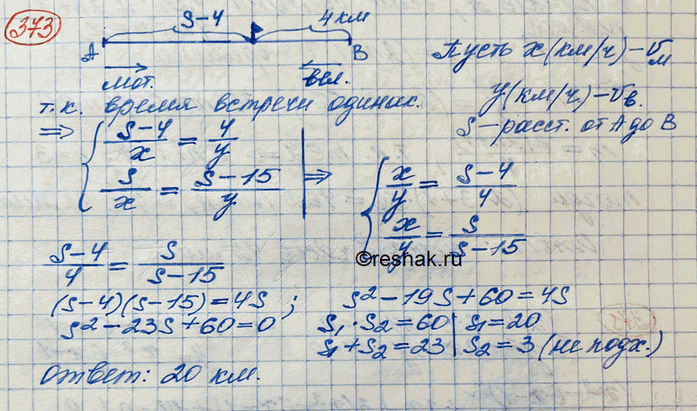 373
S-4 4 км
A B
мот. вел.
Пусть x (км/ч) - Vм
y (км/ч) - Vв.
S - расст. от A до B
т.к. время встречи одинак.
⇒ { (S-4)/x = 4/y
S/x = (S-15)/y | ⇒ { x/y = (S-4)/4
x/y = S/(S-15)
©reshak.ru
(S-4)/4 = S/(S-15)
(S-4)(S-15) = 4S ; S² - 19S + 60 = 4S
S² - 23S + 60 = 0
S₁·S₂ = 60 | S₁ = 20
S₁ + S₂ = 23 | S₂ = 3 (не подх.)
Ответ: 20 км.